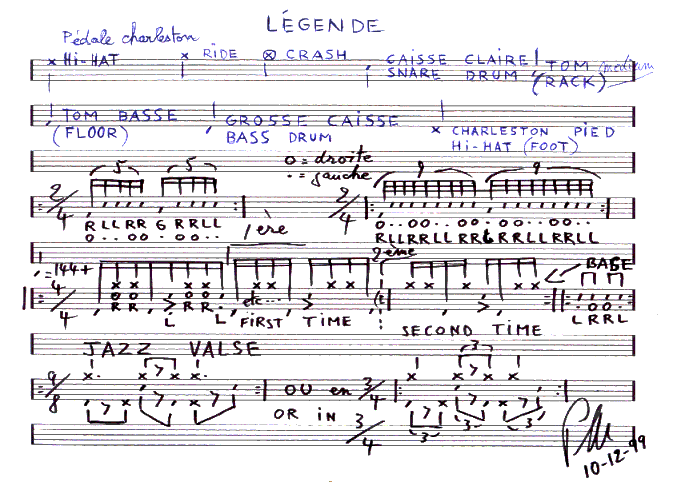 LÉGENDE
Pédale charleston
× HI-HAT × RIDE ⊗ CRASH CAISSE CLAIRE TOM medium
SNARE DRUM (RACK)
TOM BASSE GROSSE CAISSE × CHARLESTON PIED
(FLOOR) BASS DRUM HI-HAT (FOOT)
o = droite
. = gauche
5 5 9 9
2/4 2/4
R L L R R G R R L L
1ère
R L L R R L L R R G R R L L R R L L
2ème
=144+
BASE
2/4
O O O O
R R R R etc...
L L FIRST TIME SECOND TIME L R R L
JAZZ VALSE
3
9/8 OU en 3/4
OR IN 3/4
3 3 3
10-12-99